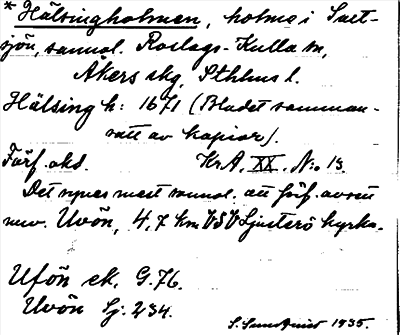 * Hälsingholmen, holme i Saxt-
sjön, sannol. Roslags-Kulla sn,
Åkers skg, Sthlms l.
Hälsing h: 1671 (Bladet samman-
satt av kopior).
Förf. okd. Kr.A. XX. N:o 13.
Det synes mest sannol. att förf. avsett
nuv. Uvön, 4,7 km VSV Ljusterö kyrka.
Ufön ek. G. 76.
Uvön Lj. 234.
S. Sundqvist 1935.